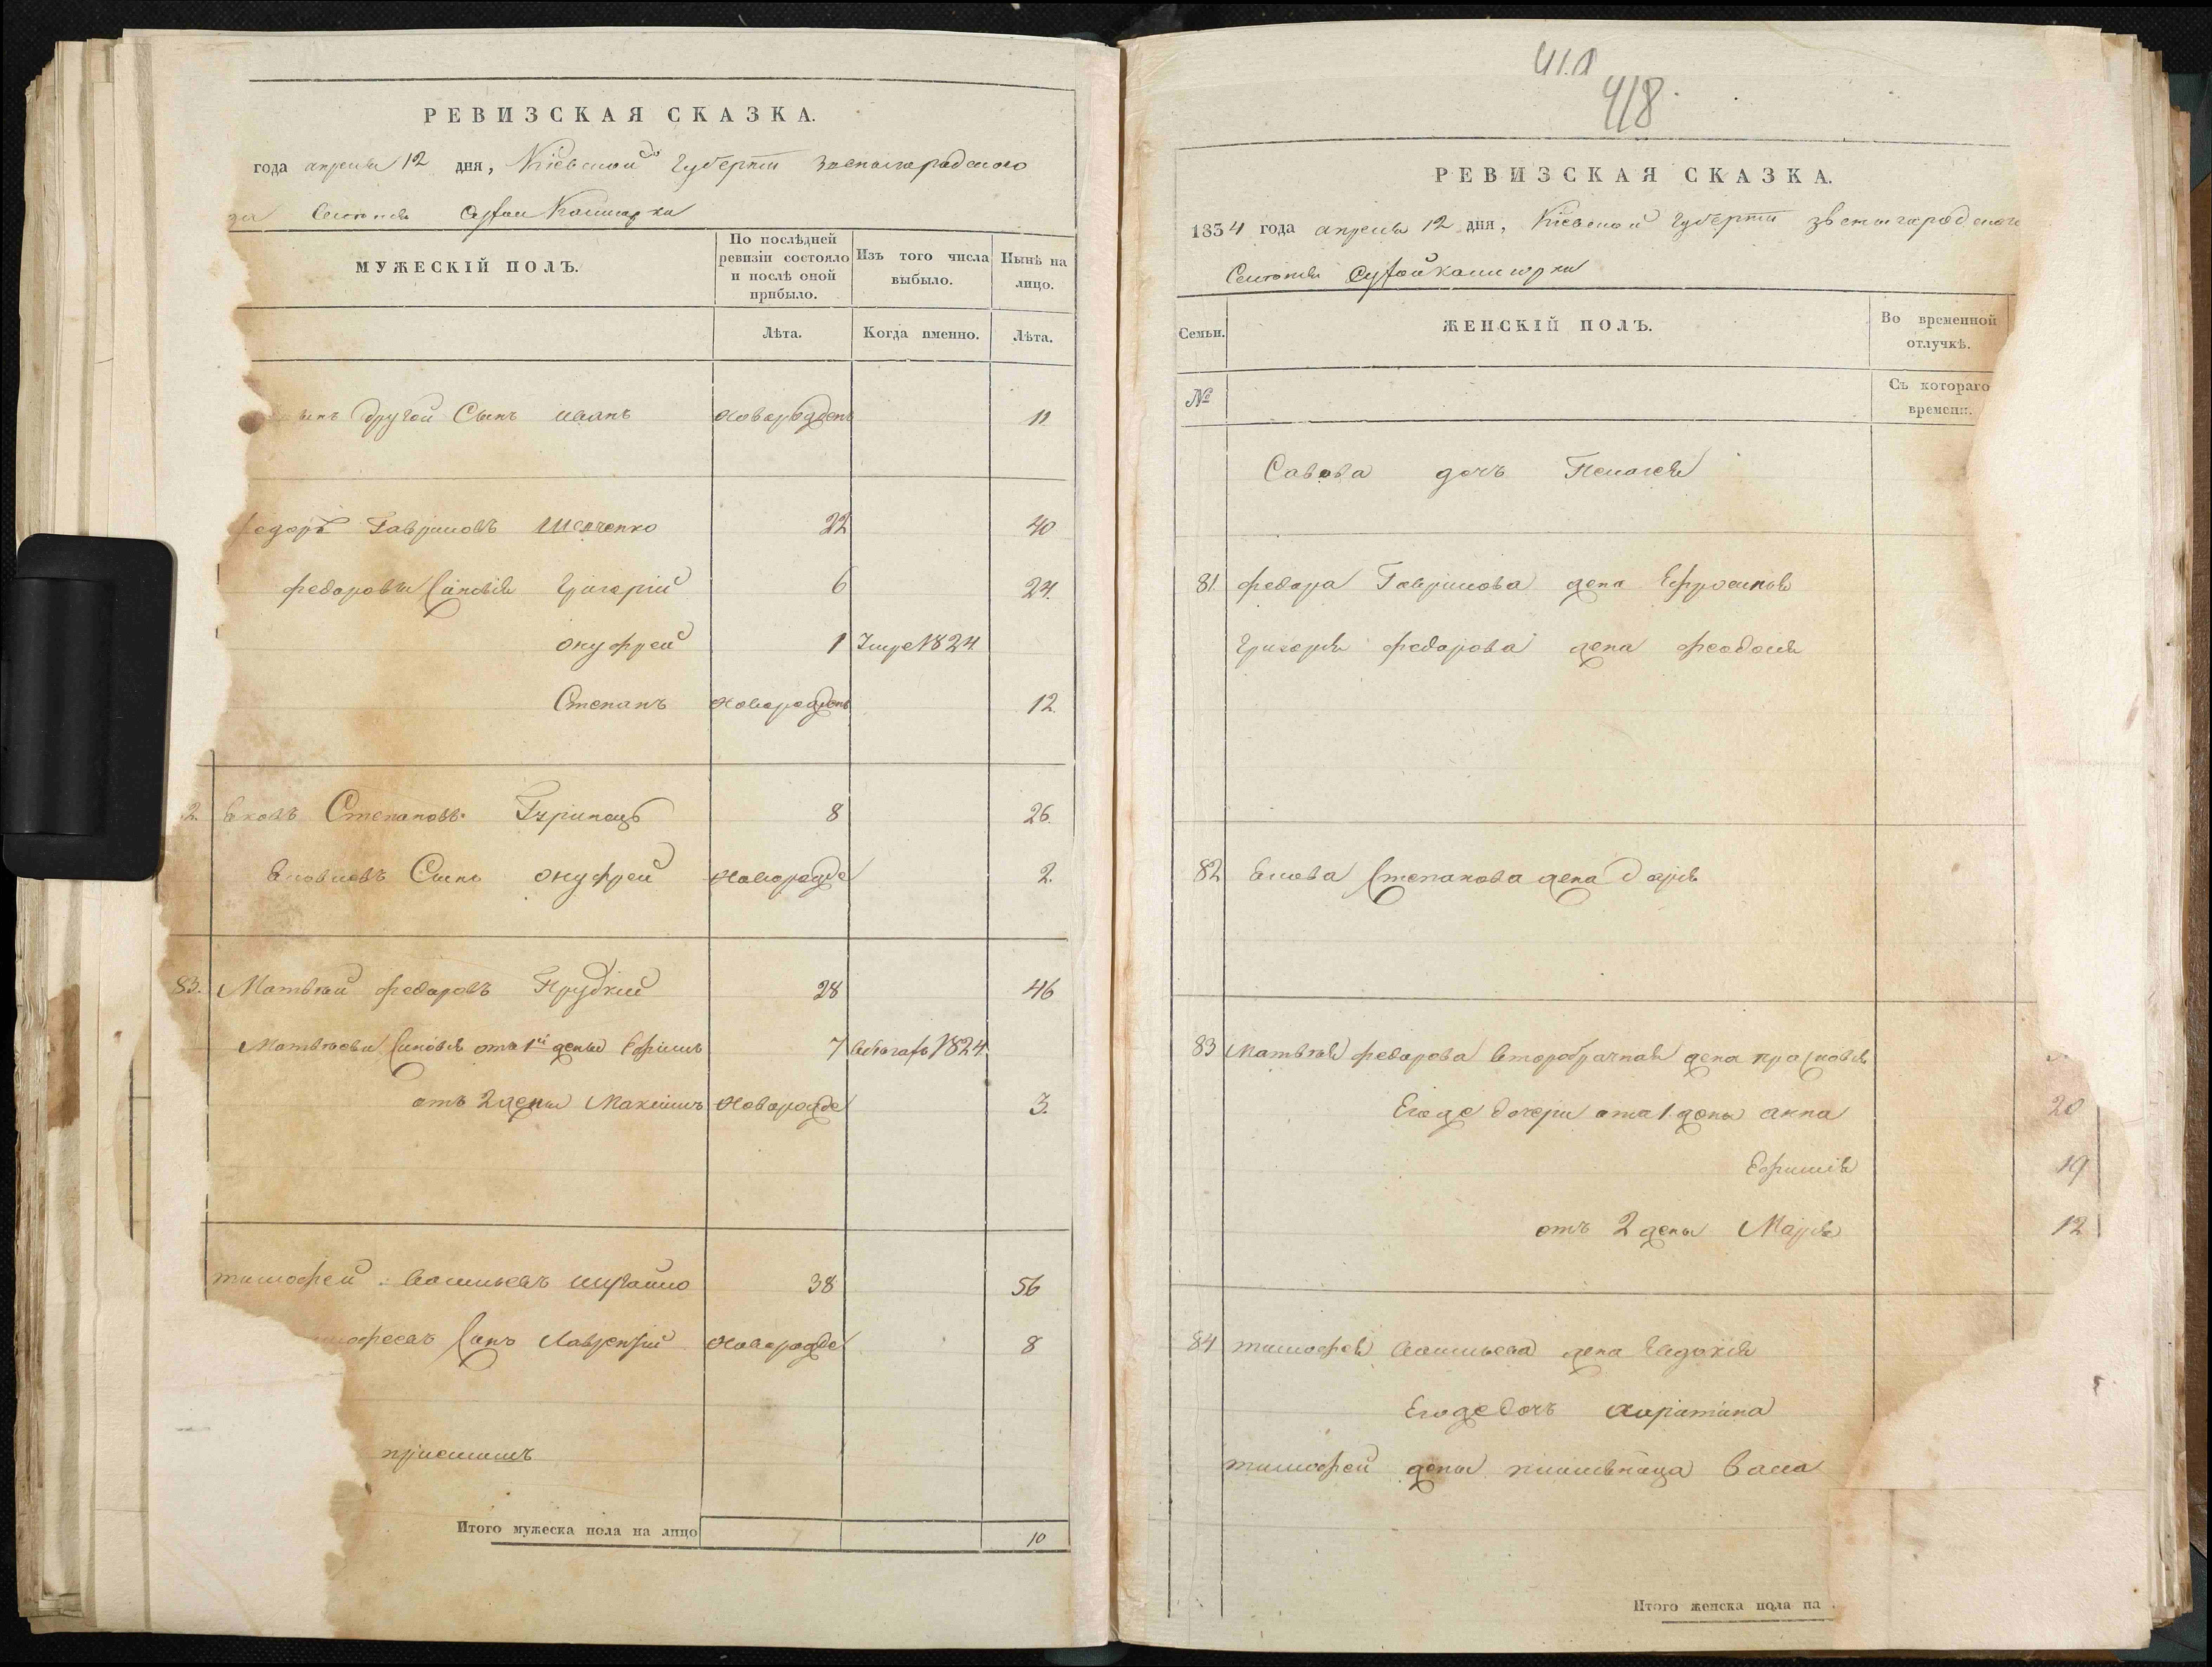 РЕВИЗСКАЯ СКАЗКА.
года апреля 12 дня, Кіевской Губерніи Звенигородского
Селенія Сухой Калигорки
МУЖЕСКІЙ ПОЛЪ.
По послѣдней ревизіи состояло и послѣ оной прибыло.
Изъ того числа выбыло.
Нынѣ на лицо.
Лѣта.
Когда именно.
Лѣта.
другой Сынъ иванъ новорожденъ 11
Гавриловъ Шевченко 22 40
федоровы Синовія Григорій 6 24.
онуфрей 1 Умре 1824
Степанъ новорожденъ 12.
2. Степановъ 8 26.
Сынъ онуфрей новорожде 2.
83. Матвѣй федоровъ 28 46
Матвѣеви Синовія отъ 1й жены Ефимъ 7 1824
отъ 2 жены Максимъ новорожде 3.
тимофей васильевъ 38 56
Синъ Лаврентій новорожде 8
Итого мужеска пола на лицо 10
411
418
РЕВИЗСКАЯ СКАЗКА.
1834 года апреля 12 дня, Кіевской Губерніи звенигородского
Селенія Сухой калигорки
Семьи.
ЖЕНСКІЙ ПОЛЪ.
Во временной отлучкѣ.
№
Съ котораго времени.
Савова дочь Пелагея
81. федора Гаврилова жена Ефросинія
Григорія федорова жена феодосія
82 Степанова жена дарія
83 Матвѣя федорова второбрачная жена прасковія
Егоже дочери отъ 1 жены анна 20
Ефимія 19
отъ 2 жены Марія 12
84 тимофея васильева жена Евдокія
Егоже дочь
тимофей жены васа
Итого женска пола на